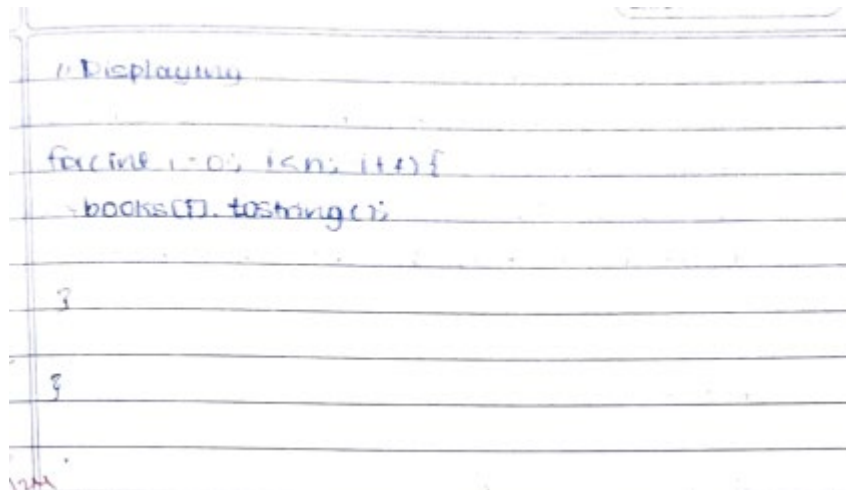 // Displaying
for(int i=0; i<n; i++) {
books[i].toString();
}
}